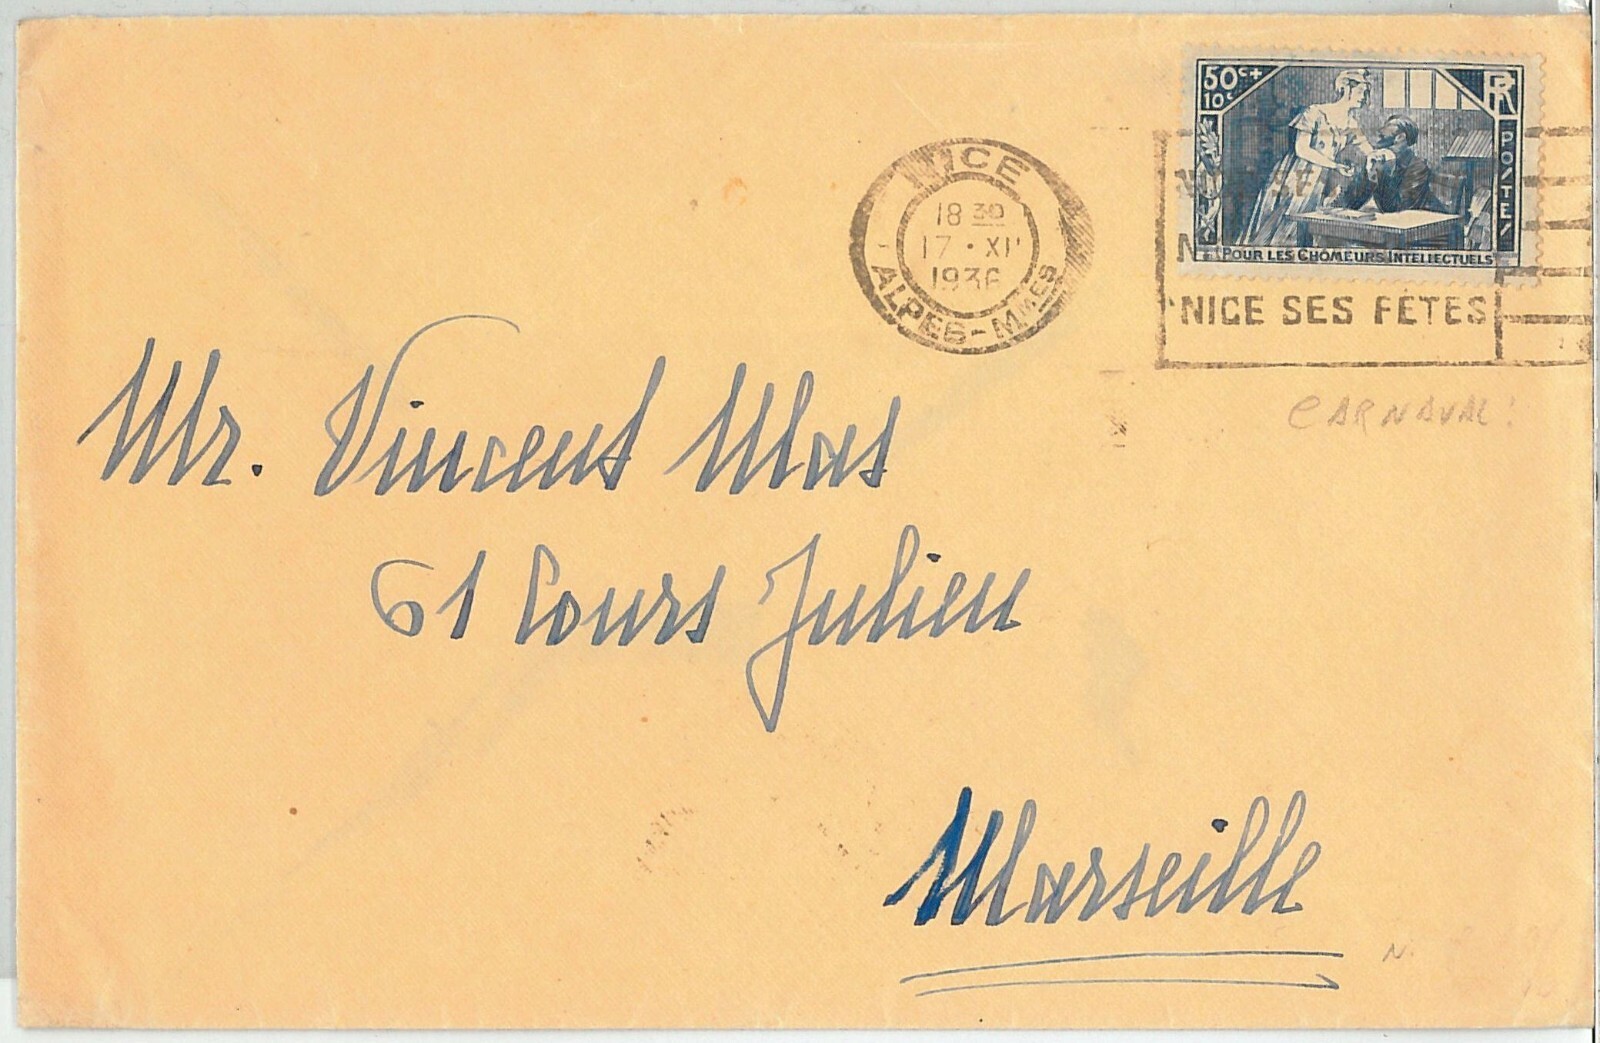 50c+
10c
RF
POSTES
POUR LES CHOMEURS INTELLECTUELS
NICE
18 30
17 · XI
1936
ALPES-MMES
NICE SES FÊTES
CARNAVAL!
Mr. Vincent Mas
61 Cours Julien
Marseille
N.